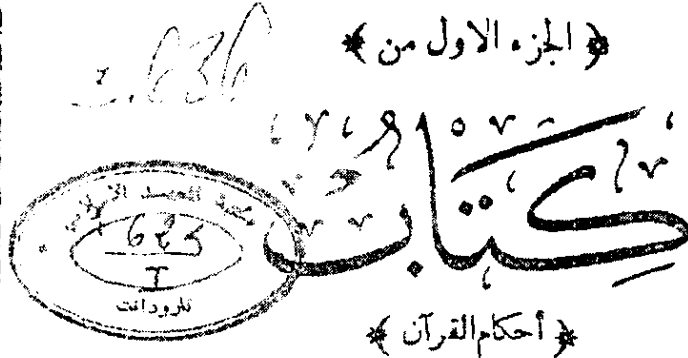 ﴿ الجزء الاول من ﴾
كتاب
﴿ أحكام القرآن ﴾
مكتبة المعهد الاسلامي
تارودانت